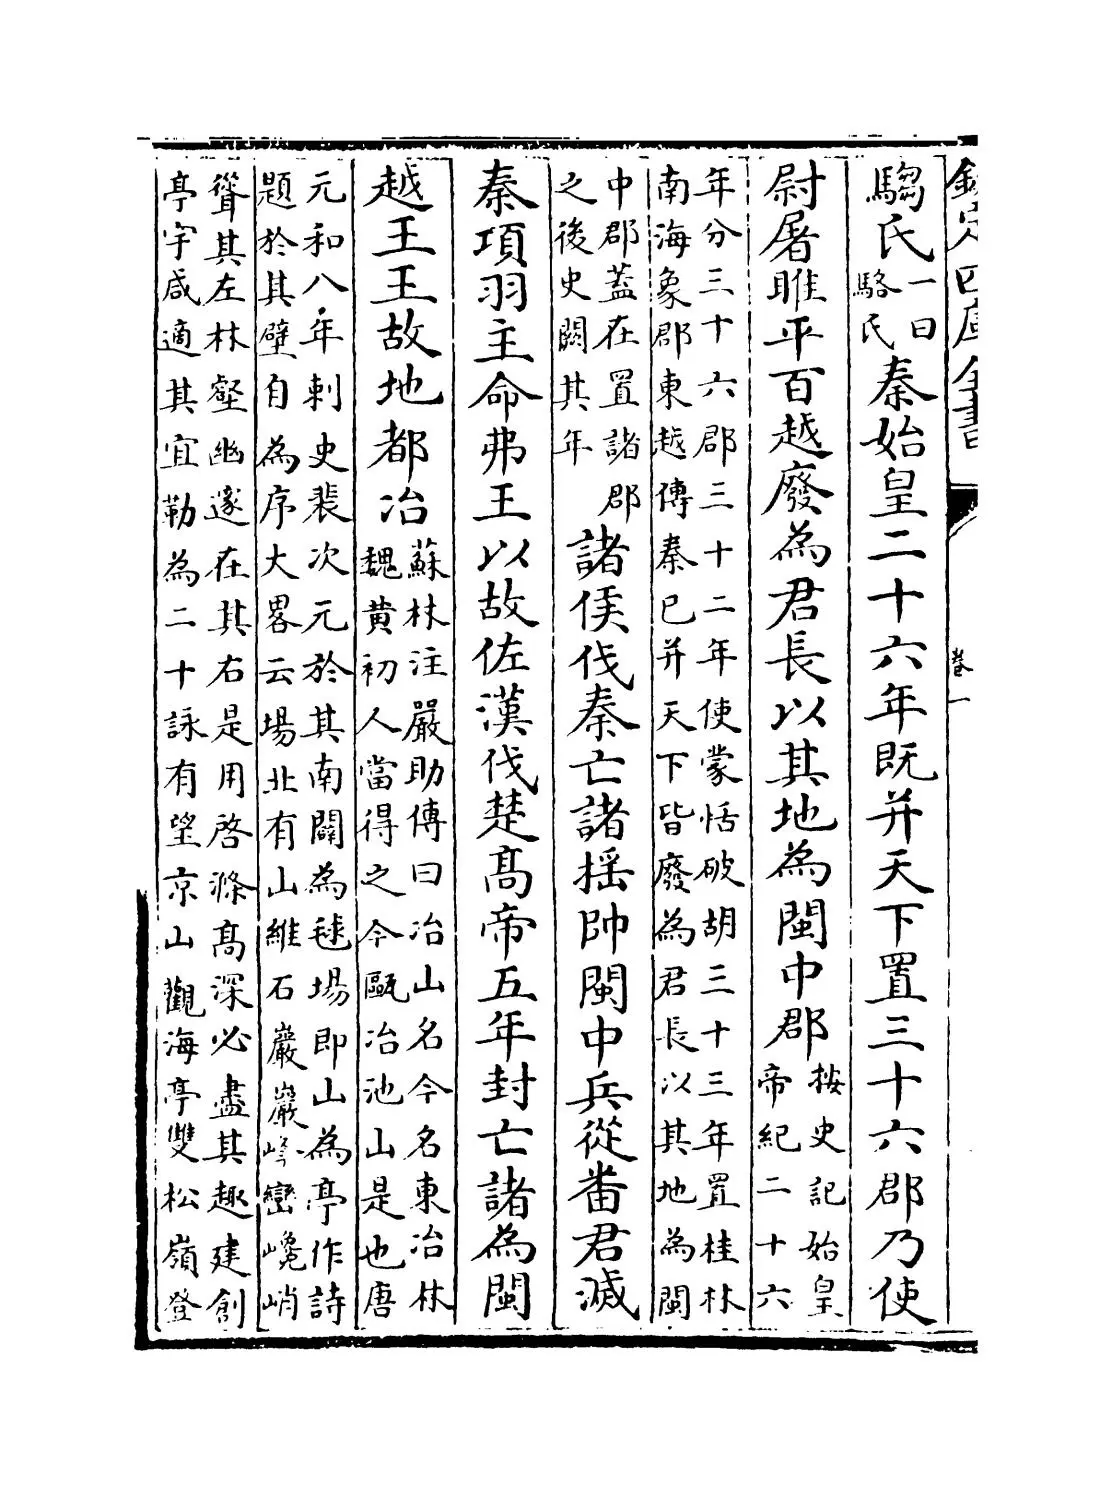 欽定四庫全書 卷一
騶氏一曰駱氏秦始皇二十六年既并天下置三十六郡乃使
尉屠睢平百越廢為君長以其地為閩中郡按史記始皇帝紀二十六
年分三十六郡三十二年使蒙恬破胡三十三年置桂林
南海象郡東越傳秦已并天下皆廢為君長以其地為閩
中郡蓋在置諸郡之後史闕其年諸侯伐秦亡諸揺帥閩中兵從番君滅
秦項羽主命弗王以故佐漢伐楚髙帝五年封亡諸為閩
越王王故地都冶蘇林注嚴助傳曰冶山名今名東冶林魏黄初人當得之今甌冶池山是也唐
元和八年刺史裴次元於其南闢為毬場即山為亭作詩
題於其壁自為序大畧云場北有山維石巖巖峰巒巉峭
聳其左林壑幽邃在其右是用啓滌髙深必盡其趣建創
亭宇咸適其宜勒為二十詠有望京山觀海亭雙松嶺登